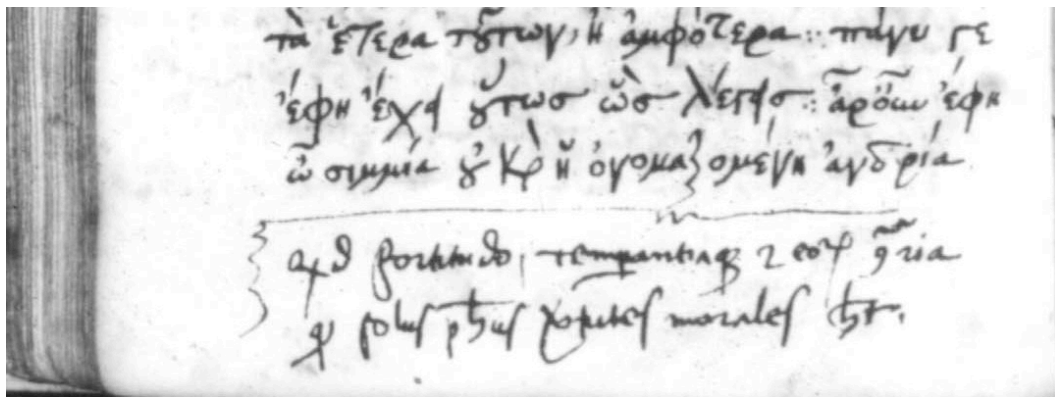 τὰ ἕτερα τούτων, ἢ ἀμφότερα : πάνυ γε
ἔφη ἔχει οὕτωσ ὡσ λέγεισ : ἆρ οὖν ἔφη
ὦ σιμμία οὐ καὶ ἡ ὀνομαζομένη ἀνδρία
qd fortitudo, temperantiaqꝫ ⁊ eoꝝ ꝯ̃ria
ꝙ solus ph̅us morales h̅t.